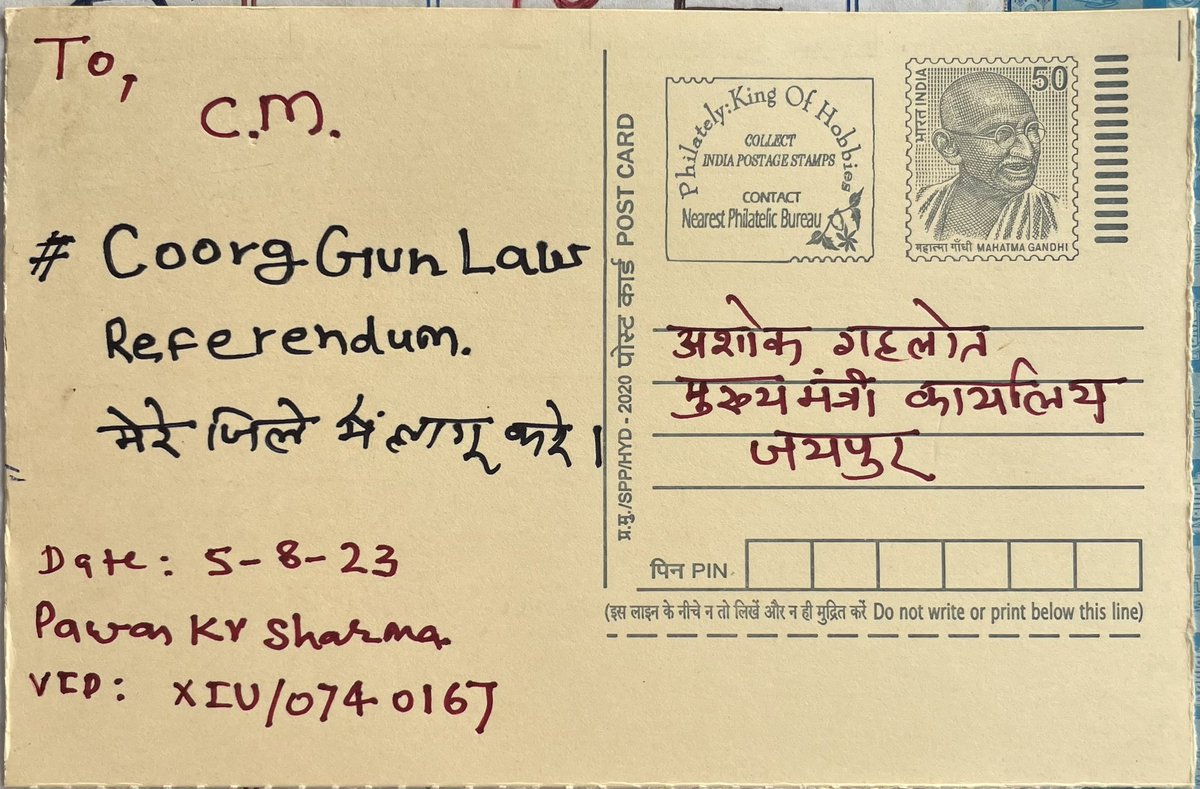 To,
C.M.
# Coorg Gun Law
Referendum.
मेरे जिले में लागू करे।
Date: 5-8-23
Pawan Kr Sharma
VID: XIU/0740167
प्र.मु./SPP/HYD - 2020 पोस्ट कार्ड POST CARD
Philately: King Of Hobbies
COLLECT
INDIA POSTAGE STAMPS
CONTACT
Nearest Philatelic Bureau
भारत INDIA
50
महात्मा गाँधी MAHATMA GANDHI
अशोक गहलोत
मुख्यमंत्री कार्यालय
जयपुर
पिन PIN
(इस लाइन के नीचे न तो लिखें और न ही मुद्रित करें Do not write or print below this line)